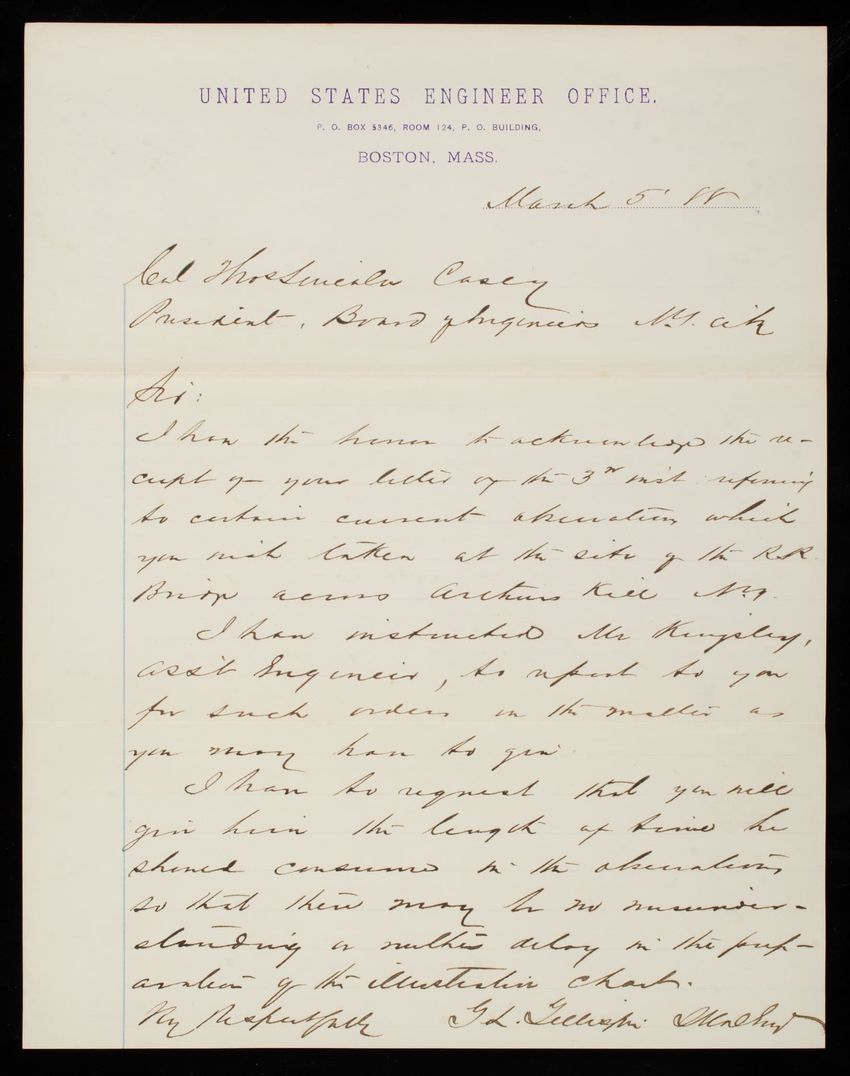 UNITED STATES ENGINEER OFFICE.
P. O. BOX 5346, ROOM 124, P. O. BUILDING,
BOSTON, MASS.
March 5' 88
Col Thos Lincoln Casey
President, Board of Engineers N.Y. City
Sir:
I have the honor to acknowledge the re-
ceipt of your letter of the 3rd inst. referring
to certain current observations which
you wish taken at the site of the R.R.
Bridge across Arthurs Kill N.Y.
I have instructed Mr Kingsley,
Ass't Engineer, to report to you
for such orders in the matter as
you may have to give.
I have to request that you will
give him the length of time he
should consume in the observations
so that there may be no misunder-
standing or further delay in the prep-
aration of the illustrative chart.
Very Respectfully G L. Gillespie